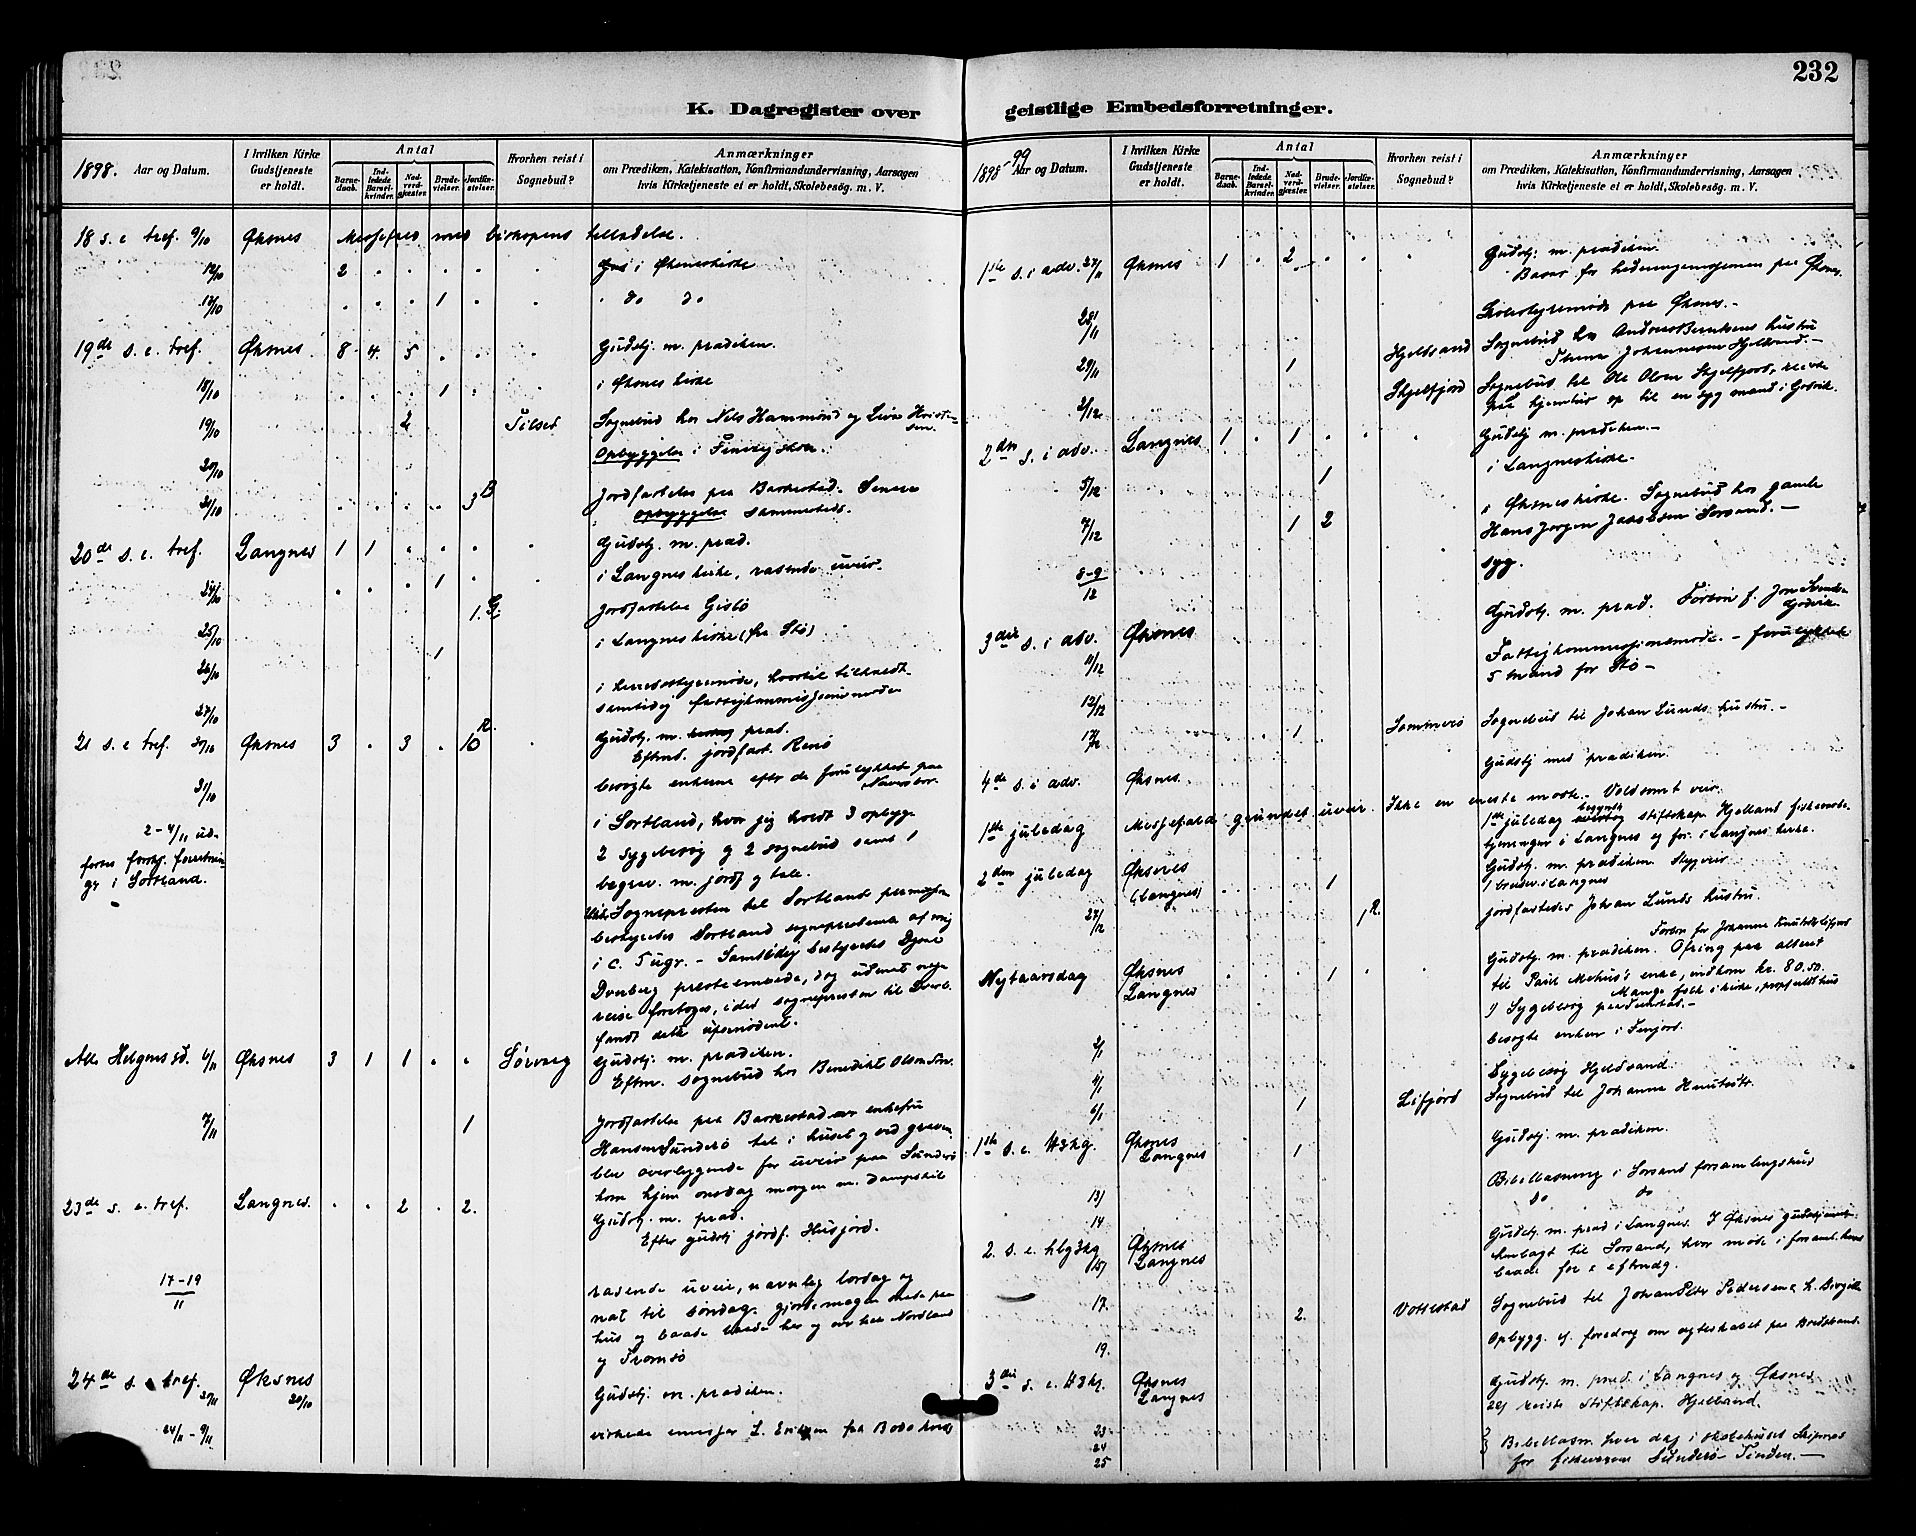 232
K. Dagregister over
1898. Aar og Datum.
I hvilken Kirke Gudstjeneste er holdt.
Antal
Barnedaab.
Indledede Barselkvinder.
Nadverdgjester.
Brudevielser.
Jordfæstelser.
Hvorhen reist i Sognebud?
Anmærkninger
om Prædiken, Katekisation, Konfirmandundervisning, Aarsagen
hvis Kirketjeneste ei er holdt, Skolebesøg. m. V.
18 s. e tref. 9/10 Øksnes Messefald med biskopens tilladelse.
12/10 2 i Øksneskirke
13/10 1 do do
19de s. e. tref. Øksnes 8 4 5 Gudstj. m. prædiken.
18/10 1 i Øksnes kirke
19/10 2 Tilset Sognebud hos Nels Hammond og
20/10 Opbyggelse i
21/10 3 B Jordfæstelse paa Barkestad. Senere
opbyggelse sammesteds.
20de s. e. tref. Langnes 1 1 Gudstj. m. præd.
24/10 1 i Langnes kirke, rasende uveir.
25/10 1. G. Jordfæstelse Gislö
26/10 1 i Langnes kirke (fra Stø)
27/10 i herredsstyremöde, hvortil tilkaldt
samtidig fattigkommissionsmöde
21 s. e tref. 30/10 Øksnes 3 3 10 R. Gudstj. m. præd.
Efterm. jordfæst. Rensö
31/10 besøgte enkerne efter de forulykkede paa
2-4/11 ud-
føres forskj. forretnin-
ger i Sortland.
i Sortland, hvor jeg holdt 3 opbygg.
2 sygebesøg og 2 sognebud samt 1
begrav. m. jordf og tale.
Sognepresten til Sortland
bestyredes Sortland sogneprestembede af mig
i c. 7 ugr. - Samtidig bestyredes
Dverberg presteembede, dog uden at
reise foretoges, idet sognepresten til Dverb.
fandt dette ufornödent.
Alle Helgens sd. 6/11 Øksnes 3 1 1 Sörvaag Gudstj. m. prædiken.
Efterm. Sognebud hos Benedikt Olsen
7/11 1 Jordfæstelse paa Barkestad over enkefru
Hansen Sunderö tale i huset og ved graven
blev overliggende for uveir paa Sunderö
kom hjem onsdag morgen m. dampskib
23de s. e. tref. Langnes. 2 2. Gudstj. m. præd.
Efter gudstj jordf. Husfjord.
17-19/11 rasende uveir, navnlig lördag og
nat til söndag. gjorde megen skade paa
hus og baade baade her og over hele Nordland
og Tromsö
24de s. e tref. 20/11 Øksnes 20/10 Gudstj. m. prædiken.
24/11 - 9/11 virkede emissær L. Eriksen fra Bodö
geistlige Embedsforretninger.
1898-99 Aar og Datum.
I hvilken Kirke Gudstjeneste er holdt.
Antal
Barnedaab.
Indledede Barselkvinder.
Nadverdgjester.
Brudevielser.
Jordfæstelser.
Hvorhen reist i Sognebud?
Anmærkninger
om Prædiken, Katekisation, Konfirmandundervisning, Aarsagen
hvis Kirketjeneste ei er holdt, Skolebesøg. m. V.
1ste s. i adv. 27/11 Øksnes 1 2 Gudstj. m. prædiken.
Basar for hedningemissionen paa Øksnes.
28/11 Skolestyremöde paa Øksnes.-
29/11 1 Hjeldsand Sognebud hos Andreas Berntsens hustru
Johannesen Hjeldsand.-
2/12 Skjelfjord Sognebud til Ole Olsen Skjelfjord,
paa hjemtur op til en syg mand i
2den s. i adv. Langnes 1 1 Gudstj m. prædiken.-
5/12 1 i Langneskirke.
7/12 1 2 i Øksneskirke. Sognebud hos gamle
Hans Jørgen Jakobsen Sorsand.-
8-9/12 syg.
3die s. i adv. 11/12 Øksnes Gudstj. m. præd. Forbön f.
12/12 Fattigkommissionsmöde. - forulykkede
5 mand fra Stö-
17/12 1 Sommerö Sognebud til Johan Lunds hustru.-
4de s. i adv. Øksnes. Gudstj med prædiken.
1ste juledag Messefald grundet uveir. Ikke en eneste mödte. Voldsomt veir.
1ste juledag begyndte stiftskap. Hjelland sin
tjeneste i Langnes og for. i Langnes kirke.
2den juledag Øksnes (Langnes) 1 Gudstj. m. prædiken Stygveir
1 brudev. i Langnes
27/12 1 R. jordfæstedes Johan Lunds hustru.
Forbön for Johanna Knutsdtr Lifjord
Nytaarsdag Øksnes Langnes 1 Gudstj. m. prædiken. Ofring paa alteret
til Paul Mehus's enke, indkom kr. 80.50.
Mange folk i kirke, propfuldt hus
1) Sygebesøg paa
2/1 besøgte enken i Finfjord.
4/1 Sygebesøg Hjeldsand.
6/1 1 Lifjord Sognebud til Johanna Knutsdtr.
1ste s. e. H3kg. Øksnes Langnes 1 Gudstj. m. prædiken.
13/ Bibellæsning i Sorsand forsamlingshus
14 do do
2. s. e. hlg3kg 15/ Øksnes Langnes Gudstj. m. præd i Langnes. I Øksnes gudstjeneste
henlagt til Sorsand, hvor möde i forsaml. huset
baade for & eftmdg.
17. 2. Vottestad Sognebud til Johan Peder Pedersen & h.
19. Opbygg. og foredrag om ægteskabet paa
3die s. e. H3kg. Øksnes Langnes Gudstj. m. præd. i Langnes og Øksnes
reiste Stiftskap. Hjelland.
23
24
25
Bibellæsn. hver dag i skolehuset Skipnes
for fiskeværene Sunderö- Tinden.-